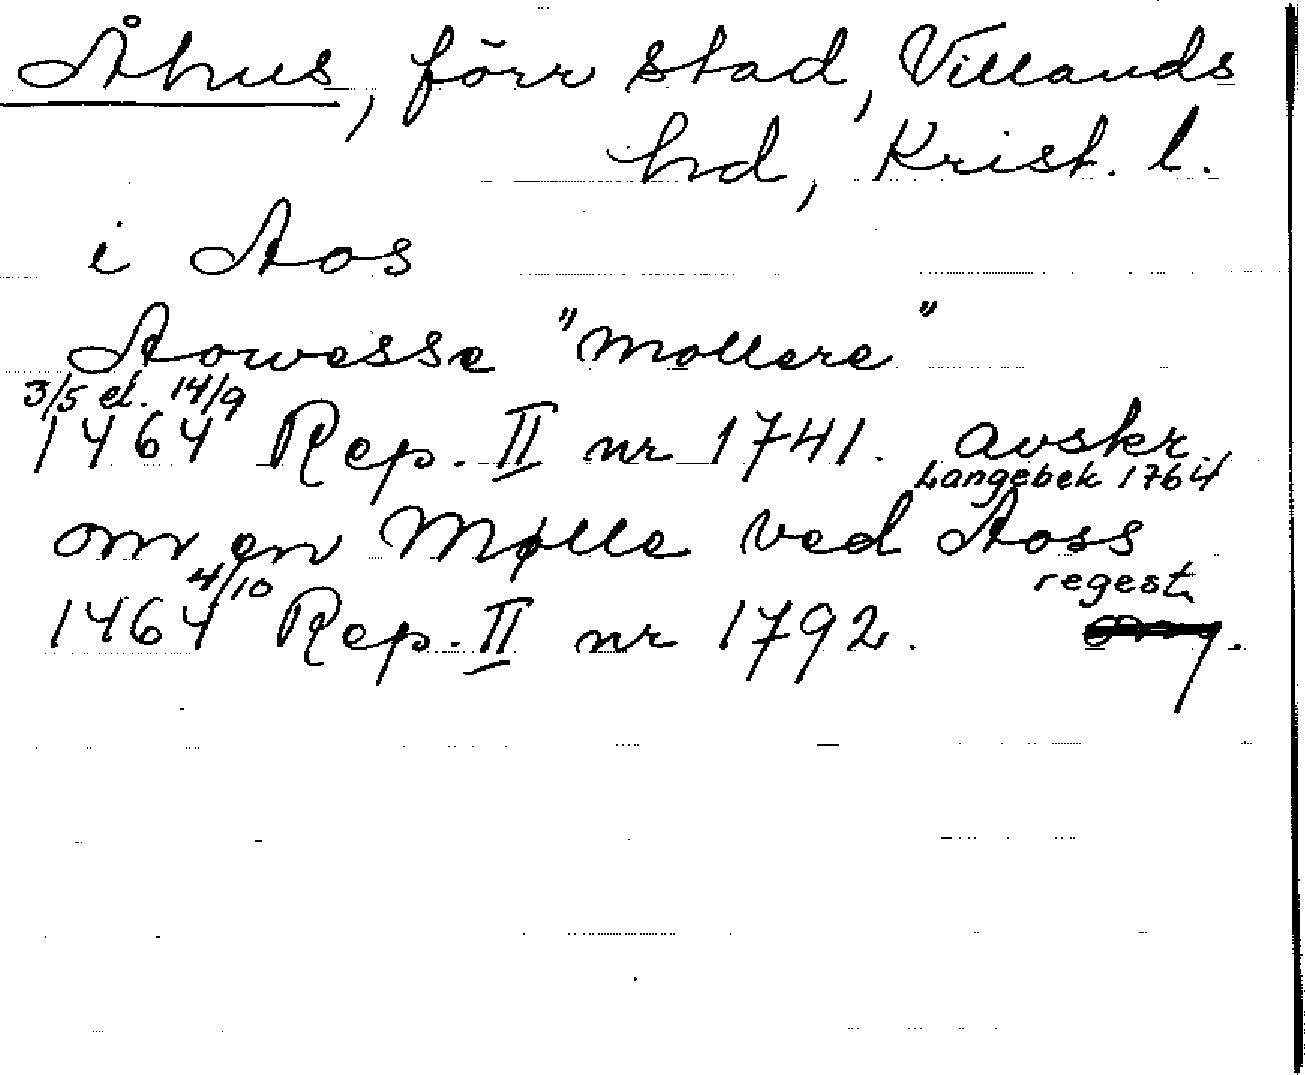 Åhus, förr stad, Villands
hd, Krist. l.
i Aos
Aowesse "mollere"
3/5 el. 14/9
1464 Rep. II nr 1741. avskr.
Langebek 1764
om en Mølle ved Aoss
4/10 regest
1464 Rep. II nr 1792.